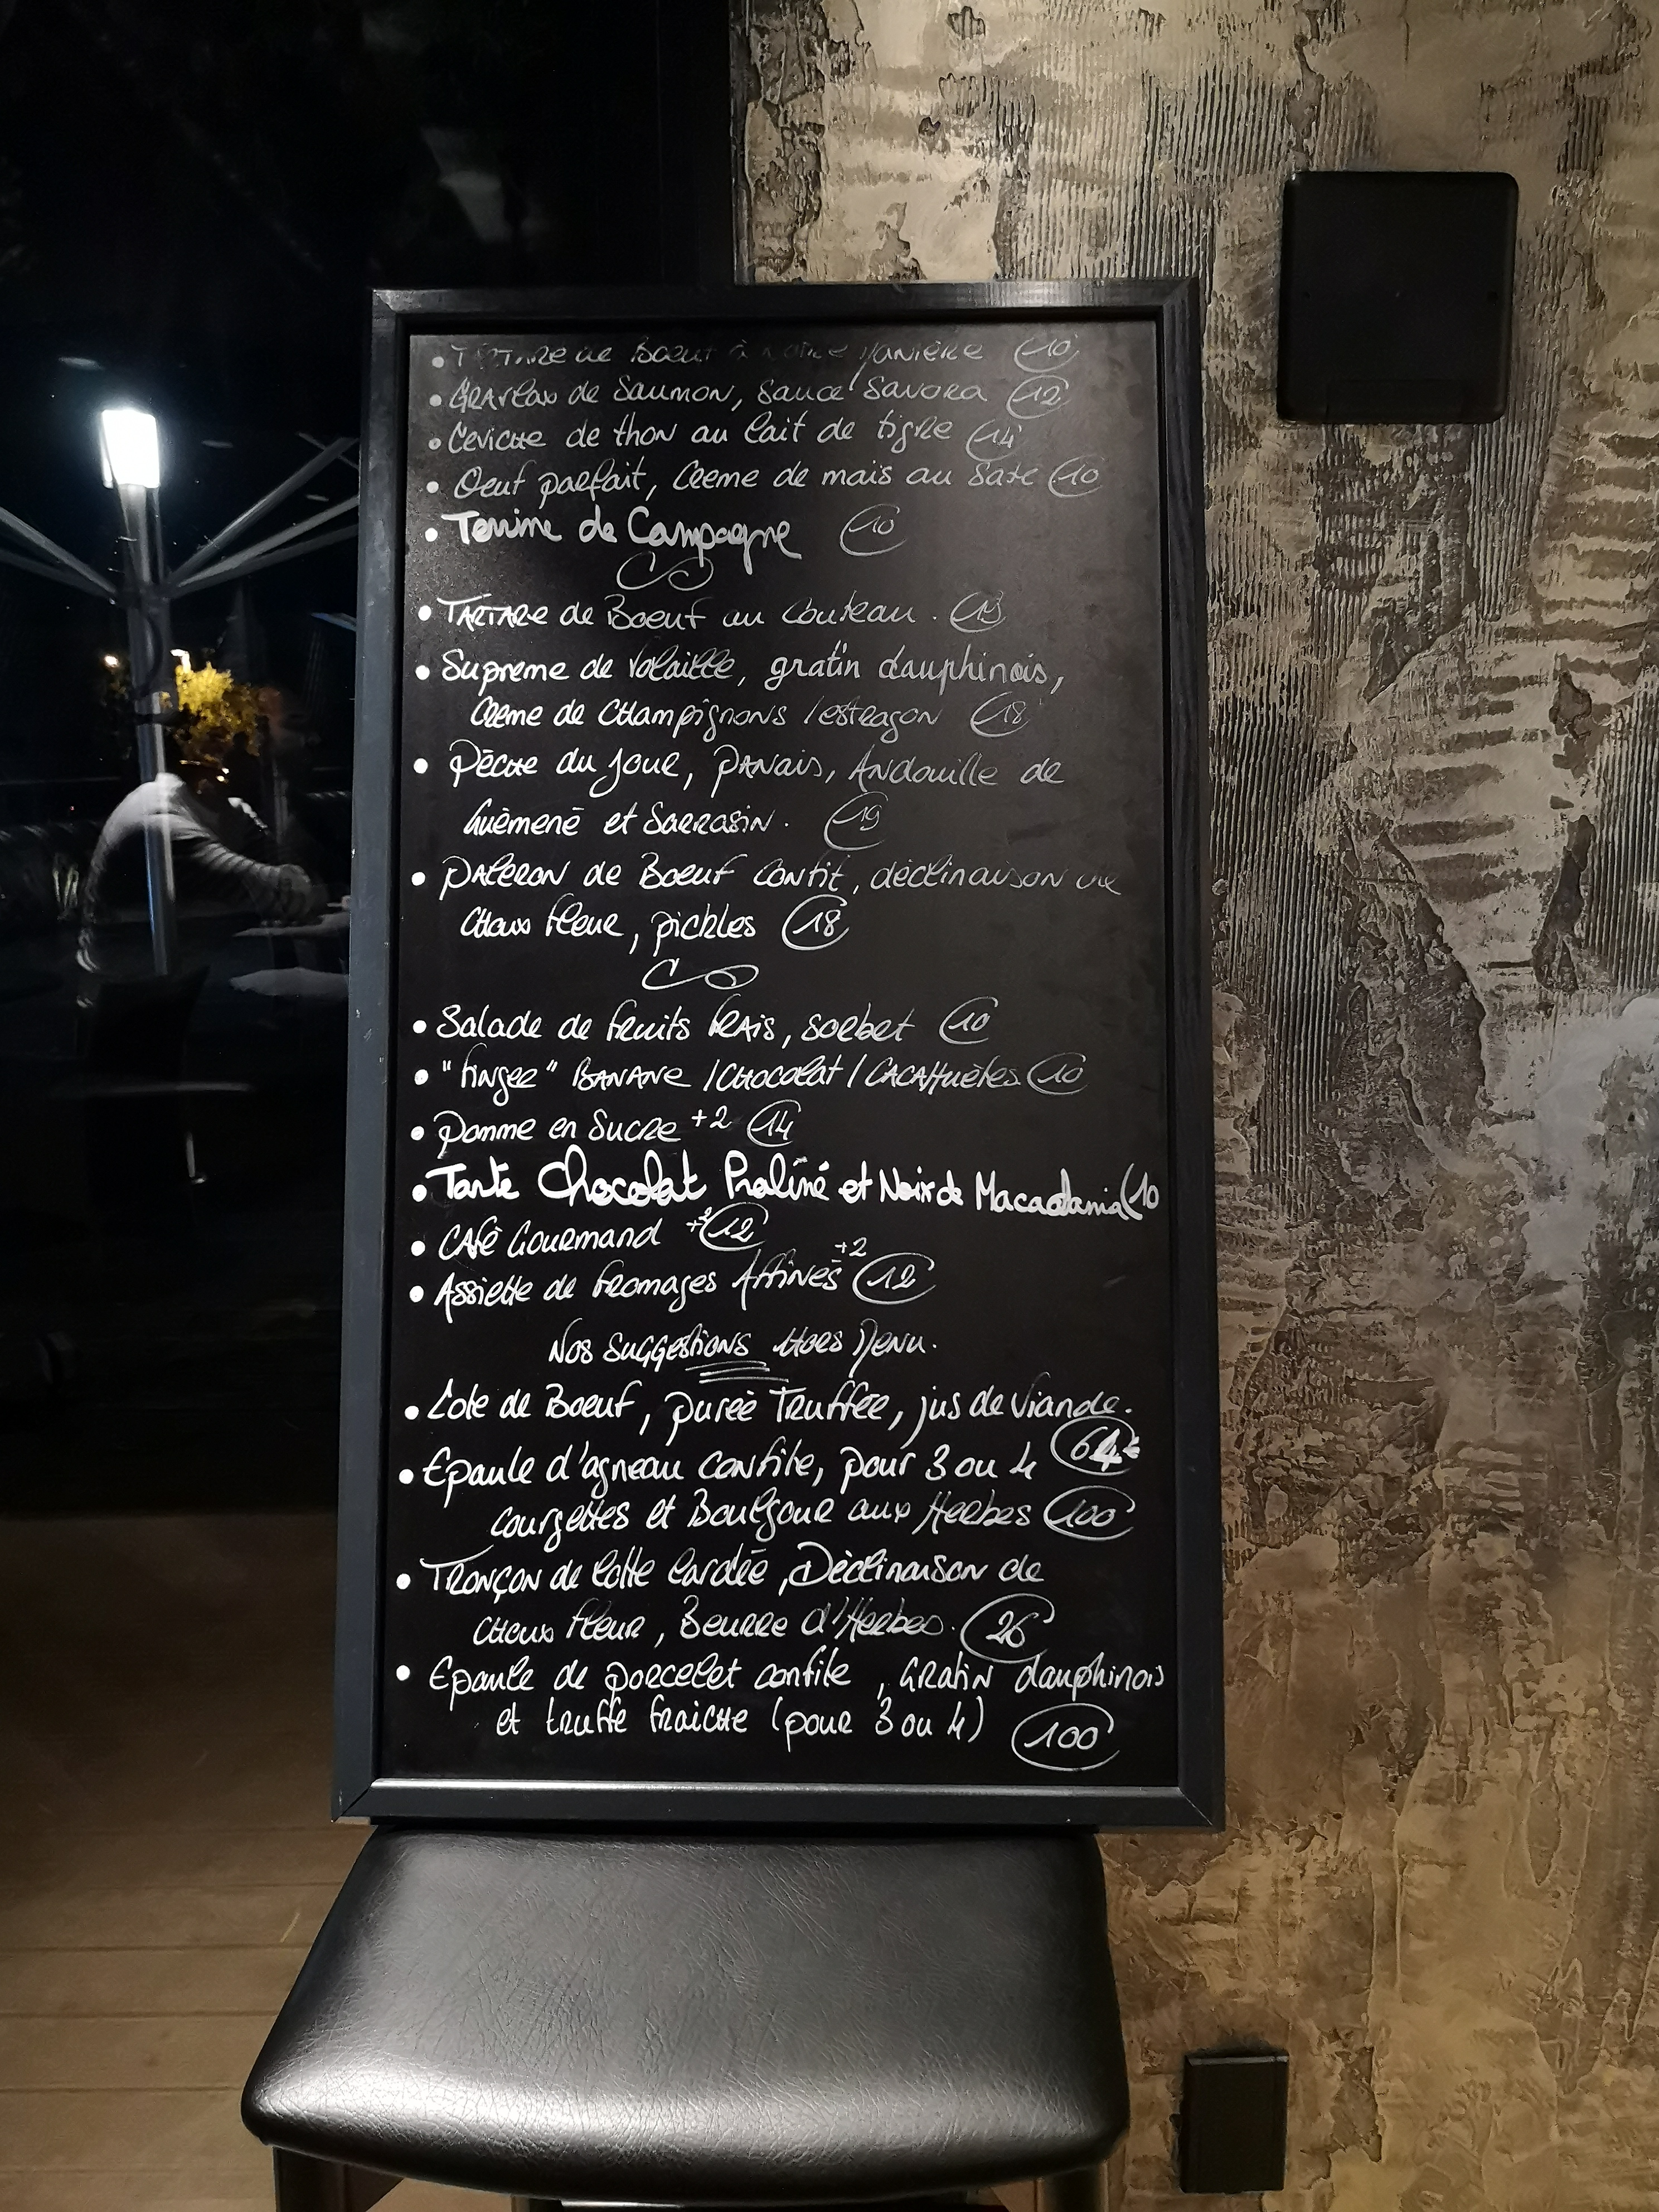 • TARTARE de Boeuf à notre Manière 10
• GRAVlax de Saumon, sauce Savora 12
• Ceviche de thon au lait de tigre 14
• Oeuf parfait, Creme de mais au Saté 10
• Terrine de Campagne 10
• TARTARE de Boeuf au Couteau.
• Supreme de volaille, gratin dauphinois,
Creme de Champignons / estragon 18
• Pêche du jour, PANais, Andouille de
Guémené et Sarrasin. 19
• Paleron de Boeuf confit, déclinaison de
Choux fleur, pickles 18
• Salade de fruits frais, sorbet 10
• "finger" BANANE / CHOCOlat / CACAHuètes 10
• Pomme en Sucre +2 14
• Tarte Chocolat Praliné et Noix de Macadamia 10
• CAfé Gourmand +2 12
• Assiette de fromages Affinés +2 12
Nos Suggestions Hors Menu.
• Cote de Boeuf, purée Truffée, jus de Viande.
64
• Epaule d'agneau confite, pour 3 ou 4
courgettes et Boulgour aux Herbes 100
• TRONÇON de lotte lardée, Déclinaison de
Choux fleur, Beurre d'Herbes. 26
• Epaule de porcelet confite, GRatin dauphinois
et truffe fraiche (pour 3 ou 4) 100